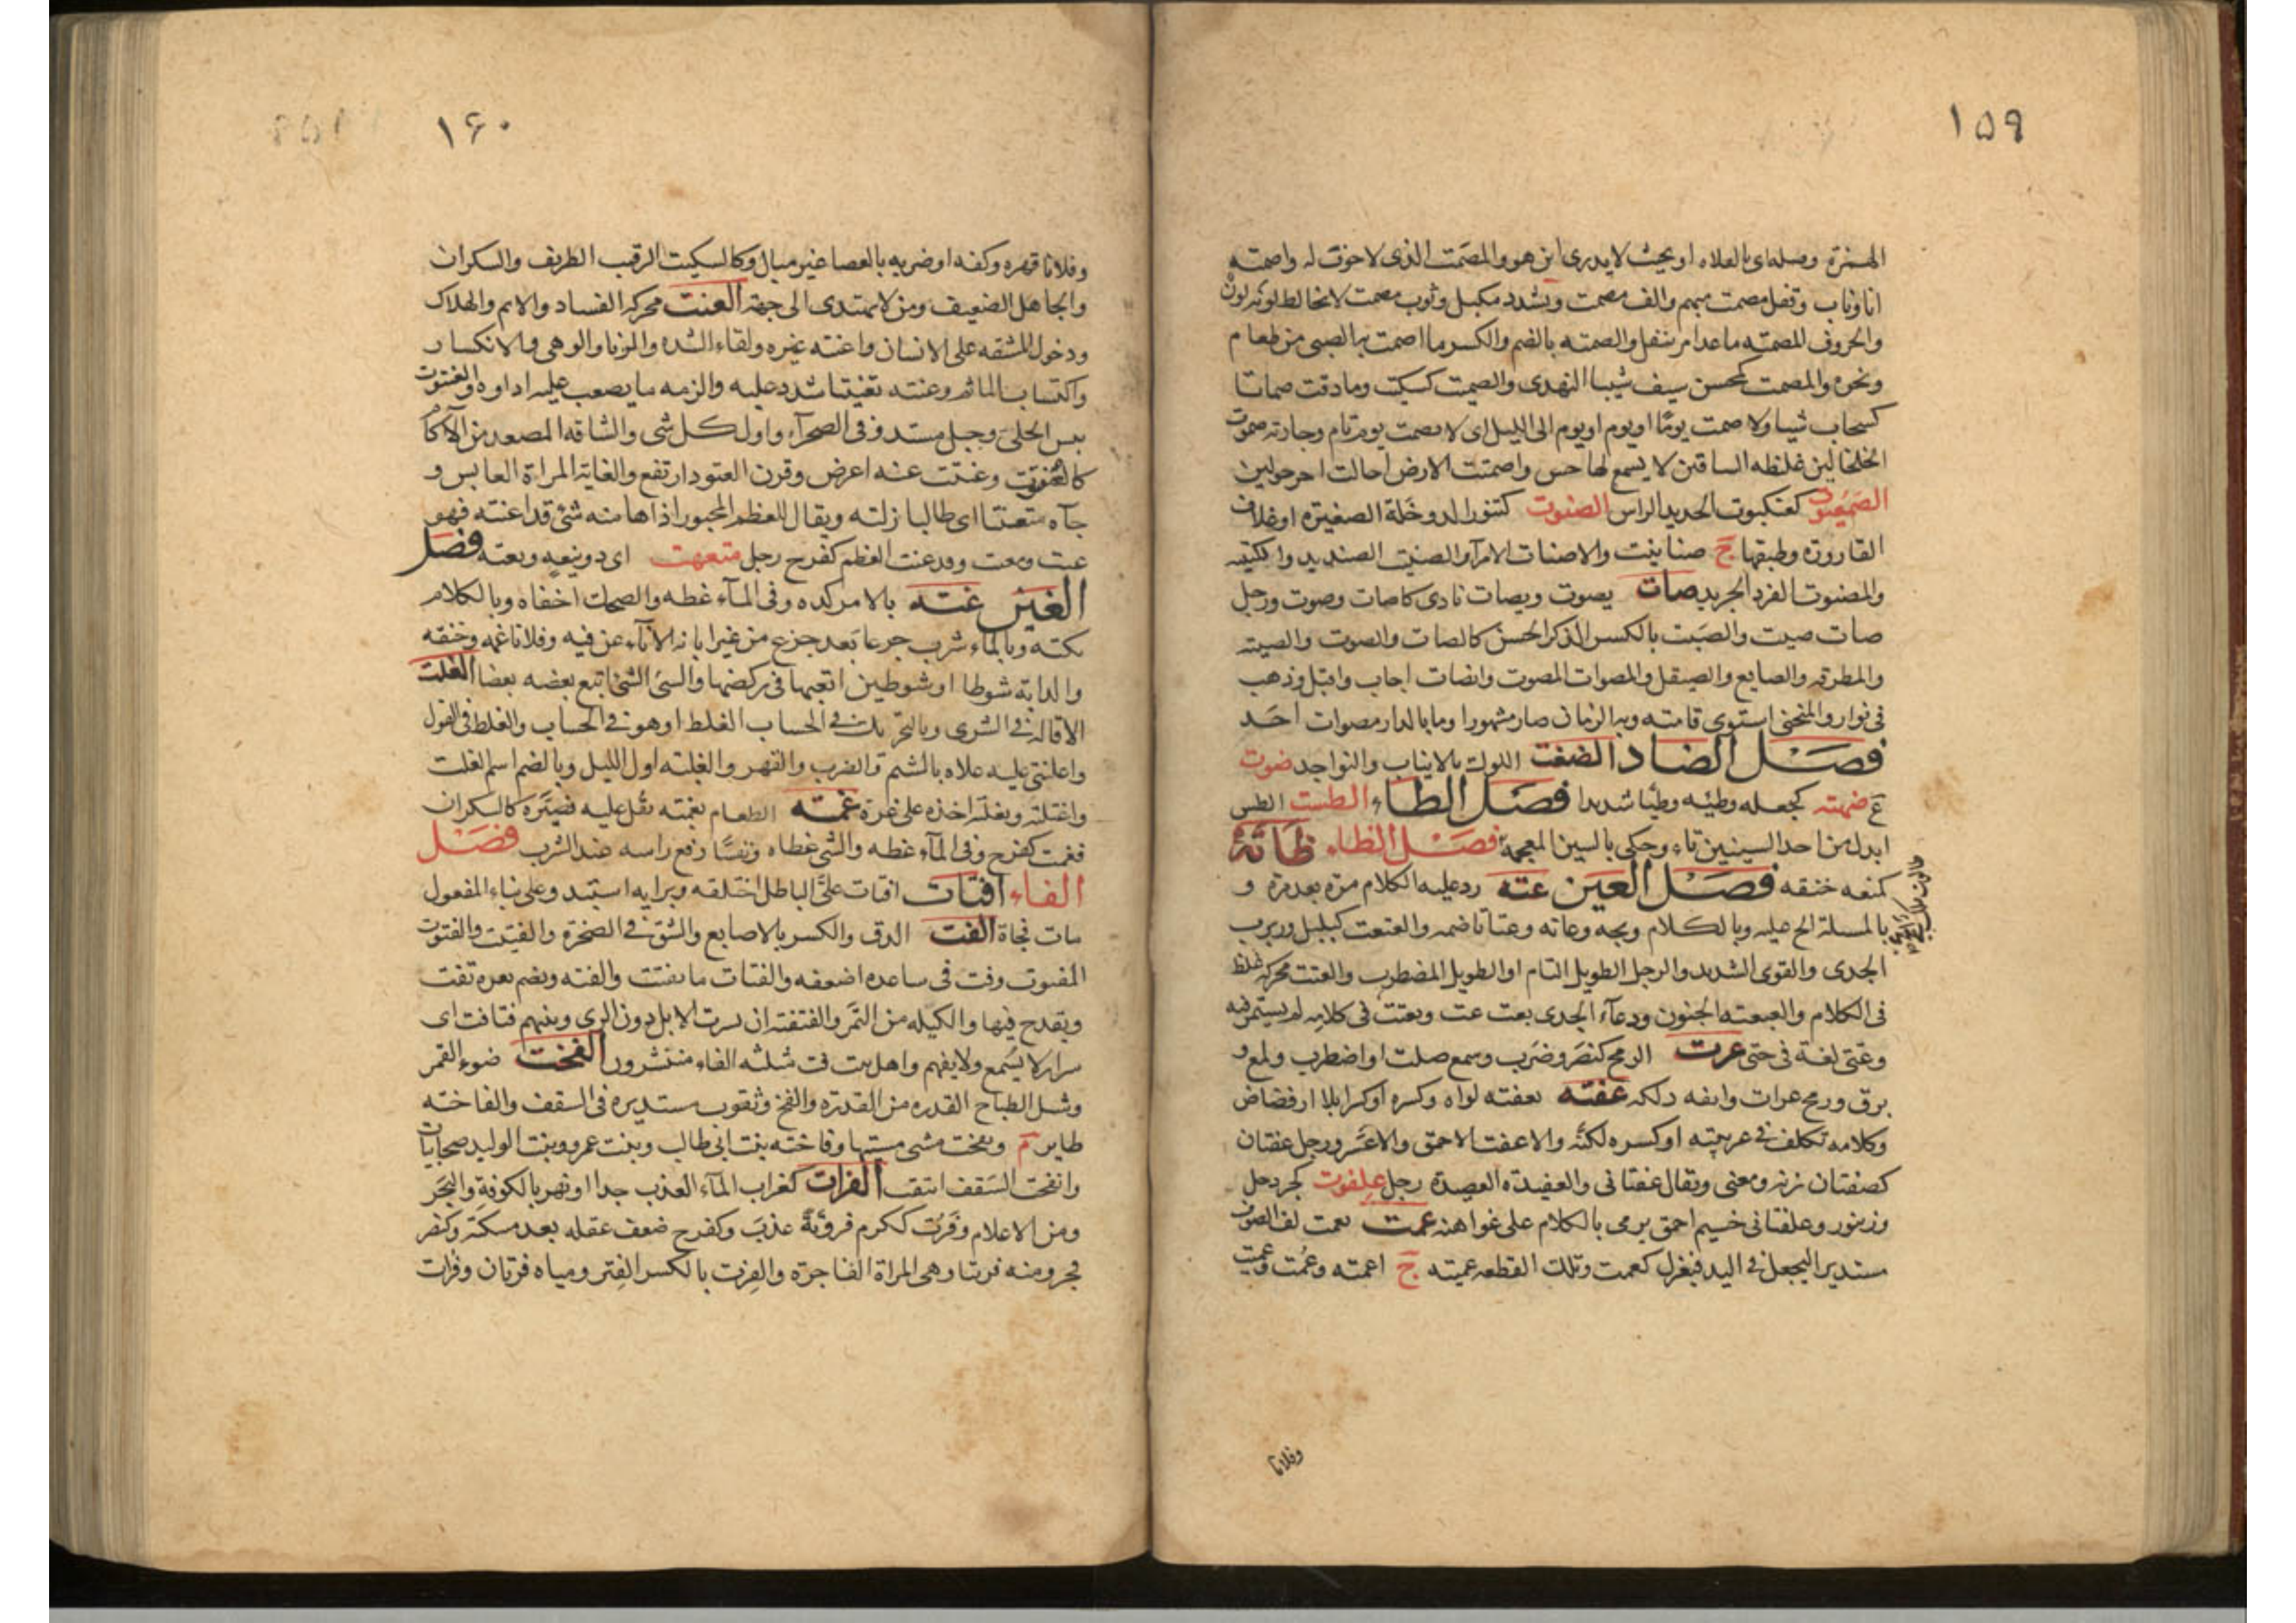 ١٥٩
الهمزة وصله اى بالفلاه او بحيث لا يدرى اين هو والمصمت الذى لا جوف له واصمته
انا وناب وقفل مصمت مبهم والف مصمت ويشدد مكمل وثوب مصمت لا يخالط لونه لون
والحروف المصمته ماعدا مر بنفل والصمته بالضم والكسر ما اصمت به الصبى من طعام
ونحوه والمصمت كمحسن سيف شيبا النهدى والصميت كسكيت وما ذقت صماتا
كسحاب شيا ولا صمت يومًا او يوم او يوم الى الليل اى لا يصمت يوم تام وجارية صموت
الخلخالين غليظه الساقين لا يسمع لها حس واصمتت الارض احالت اخر حولين
الصمعيوت كعنكبوت الحديد الراس الصنوت كتنور الدوخلة الصغيرة او غلاف
القارورة وطبقها ج صنانيت والاصنات الامرآ والصنيت الصنديد والكتيبه
والمصنوت الفرد الحريد صات يصوت ويصات نادى كاصات وصوت ورجل
صات صيت والصيت بالكسر الذكر الحسن كالصات والصوت والصيته
والمطرقه والصايغ والصيقل والمصوات المصوت وانصات اجاب واقبل وذهب
فى توار والمنحنى استوى قامته وبه الزمان صار مشهورا وما بالدار مصوات احد
فصل الضاد الضغت اللوك بالانياب والنواجد ضوت
ع ضهته كجعله وطيئه وطيًا شديدا فصل الطاء الطست الطس
ابدل من احد السينين تاء وحكى بالسين المعجمة فصل الظاء ظاته
كمنعه خنقه فصل العين عته رد عليه الكلام مره بعد مرة و
بالمسلة الح عليه وبالكلام وبخه وعاته وعتاتا خاصمه والعتعت كبلبل وربرب
الجدى والقوى الشديد والرجل الطويل التام او الطويل المضطرب والعتت محركه غلظ
فى الكلام والعتعته الجنون ودعآء الجدى بعت عت وتعتت فى كلامه لم يستمر فيه
وعتى لغة فى حتى عرت الرمح كنصر وضرب وسمع صلت او اضطرب ولمع و
برق ورمح عرات وانفه دلكه عفته يعفته لواه وكسره او كسرا بلا ارفضاض
وكلامه تكلف فى عربيته او كسره لكنًه والاعفت الاحمق والاعسر ورجل عفتان
كصفتان زنه ومعنى ويقال عفتانى والعفيته العصيدة رجل علفوت كجردحل
وزنبور وعلفتانى خسيم احمق يرمى بالكلام على عواهنه عمت يعمت لف الصوف
مستديرا ليجعل فى اليد فيغزل كعمت وتلك القطعه عميته ج اعمته وعمت وعميت
وفلانا
١٦٠
وفلانا قهره وكفه او ضربه بالعصا غير مبال وكالسكيت الرقيب الظريف والسكران
والجاهل الضعيف ومن لا يهتدى الى جهة العنت محركه الفساد والاثم والهلاك
ودخول المشقه على الانسان واعنته غيره ولقاء الشده والزنا والوهى والانكسار
واكتساب الماثم وعنته تعنيتا شدد عليه والزمه ما يصعب عليه اداوه والعنتوت
يبيس الحلىَ وجبل مستدق فى الصحرآء واول كل شى والشاقه المصعد من الآكام
كالعنتوت وعنتت عنه اعرض وقرن العتود ارتفع والغاية المراة العابس و
جآه متعنتا اى طالبا زلته ويقال للعظم المجبور اذا هاضه شئ قد اعنته فهو
عنت ومعنت وقد عنت العظم كفرح رجل متعهت اى ذو نيقه وتعته فصل
الغين غته بالامر كده وفى المآء غطه والضحك اخفاه وبالكلام
بكته وبالماء شرب جرعا بعد جرع من غير ابانه الاناء عن فيه وفلانا غمه وخنقه
والدابة شوطا او شوطين اتعبها فى ركضها والشئ الشئ اتبع بعضه بعضا الغلت
الاقاله فى الشرى وبالتحريك فى الحساب الغلط او هو فى الحساب والغلط فى القول
واغلنتى عليه علاه بالشتم والضرب والقهر والغلته اول الليل وبالضم اسم لغلت
واغتلته وتغلته اخذه على غرة غمته الطعام يغمته ثقل عليه فصيره كالسكران
فغمت كفرح وفى المآء غطه والشئ غطاه ونفسًا رفع راسه عند الشرب فصل
الفاء افتات افتات علىَّ الباطل اختلقه وبرايه استبد وعلى بناء المفعول
مات فجاة الفت الدق والكسر بالاصابع والشق فى الصخرة والفتيت والفتوت
المفتوت وفت فى ساعده اضعفه والفتات ما تفتت والفته ويضم بعره تفت
ويقدح فيها والكيله من التمر والفتفته ان تسرب الابل دون الرى وبينهم فتافت اى
سرار لا يسمع ولا يفهم واهل بيت فت مثلثه الفاء منتشرون الفخت ضوء القمر
ونشل الطباخ القدره من القدرة والفخ وثقوب مستديره فى السقف والفاخته
طاير م وتفخت مشى مشيتها وفاخته بنت ابى طالب وبنت عمرو وبنت الوليد صحابيات
وانفخت السقف انثقب الفرات كغراب المآء العذب جدا او نهر بالكوفة والبحر
ومن الاعلام وفرت ككرم فروتة عذب وكفرح ضعف عقله بعد مسكة وكنصر
فجر ومنه فرتنا وهى المراة الفاجرة والفرت بالكسر الفتر ومياه فرتان وفرات